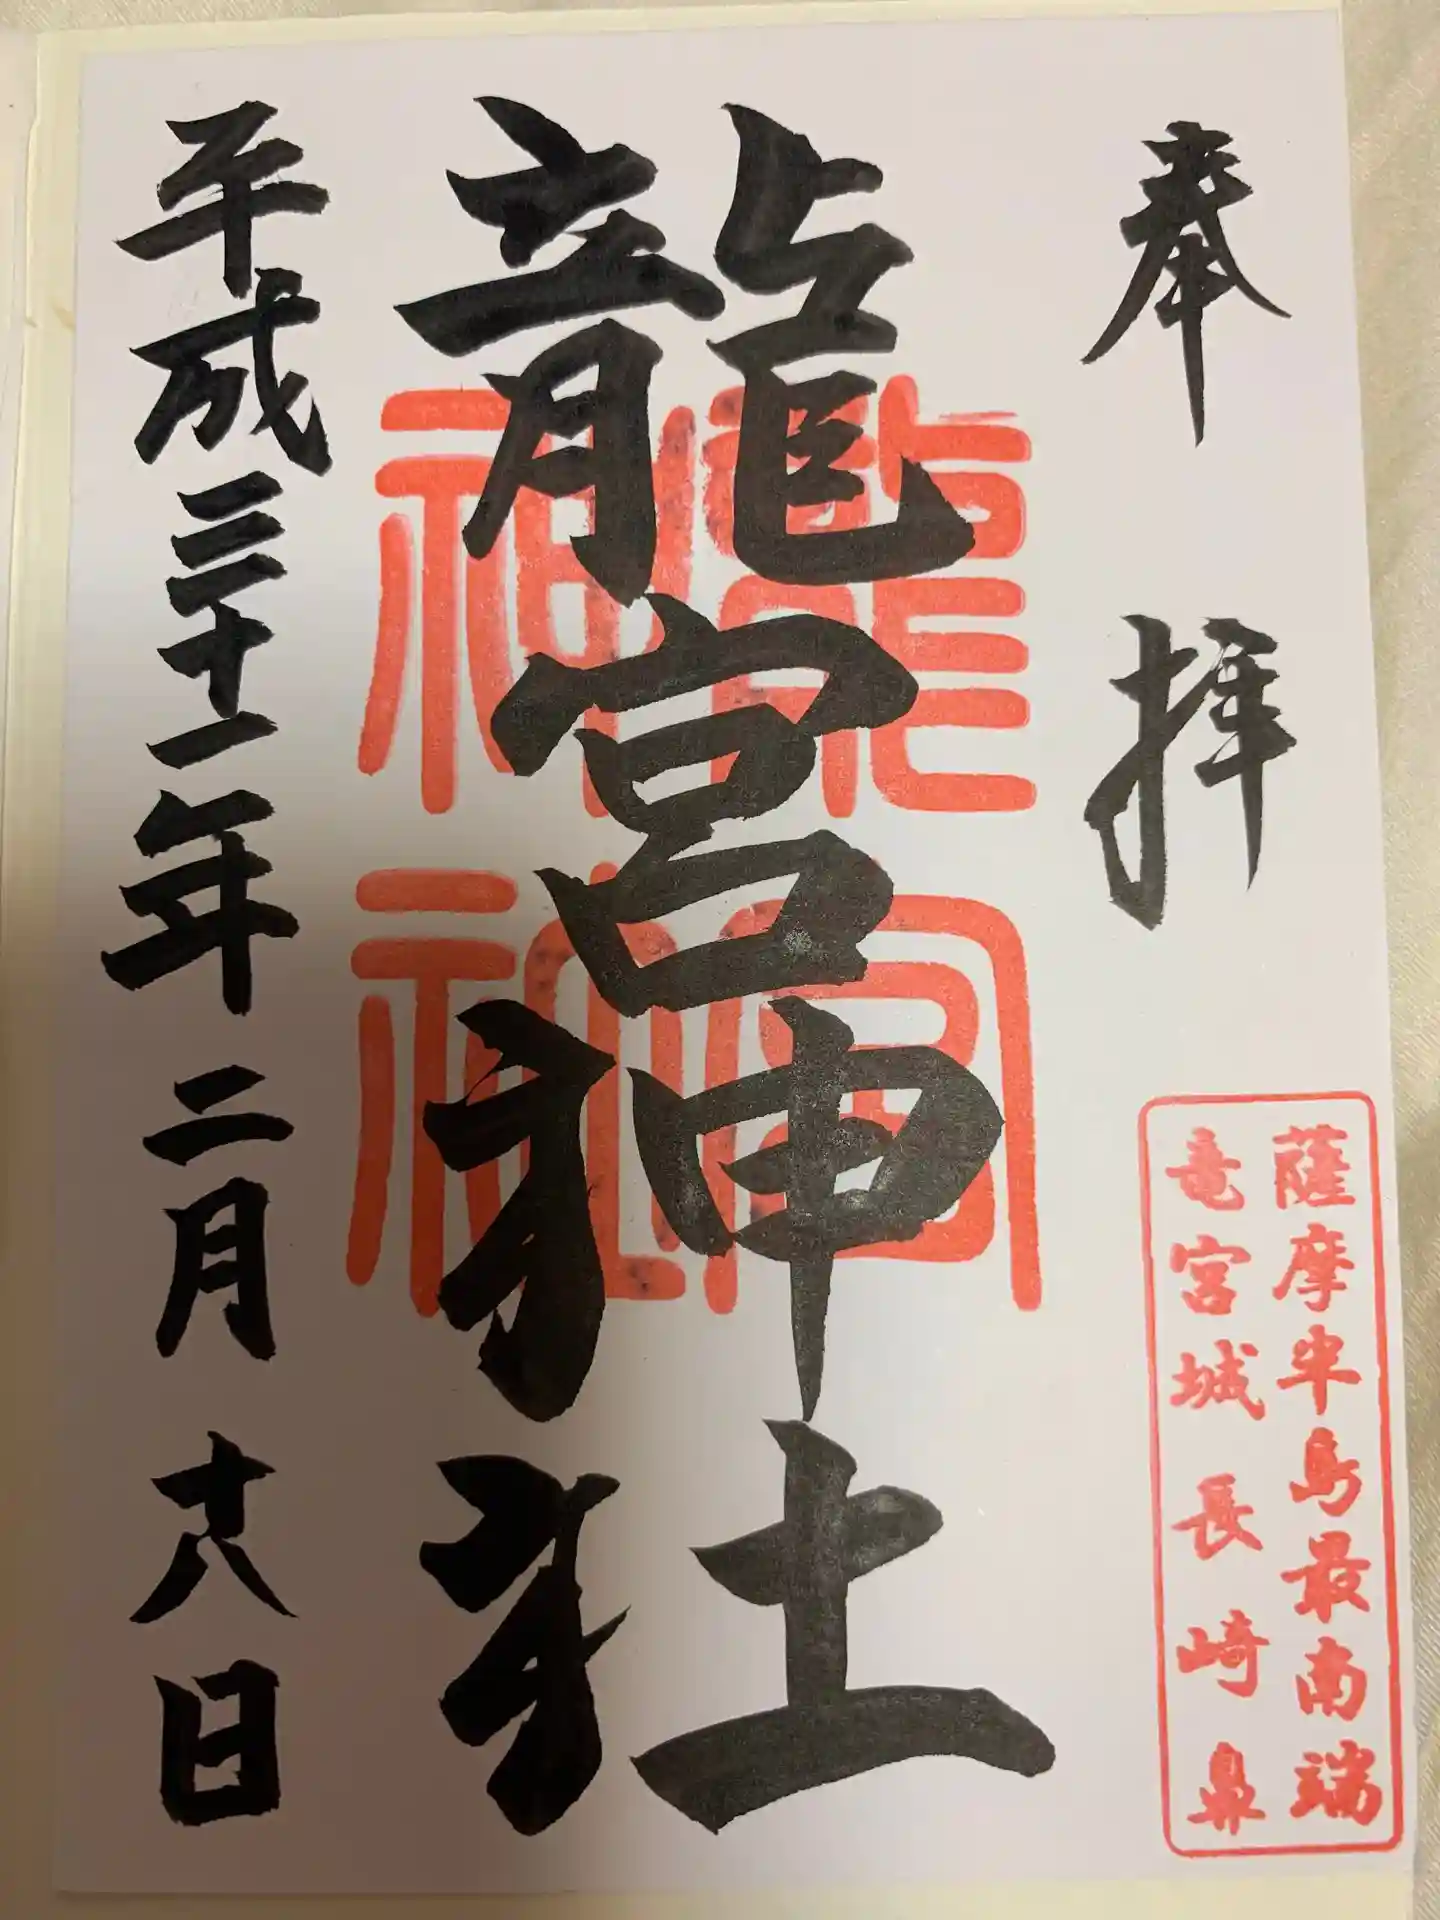 奉拝
薩摩半島最南端
竜宮城長崎鼻
龍宮神社
龍宮
神社
平成三十一年二月十八日